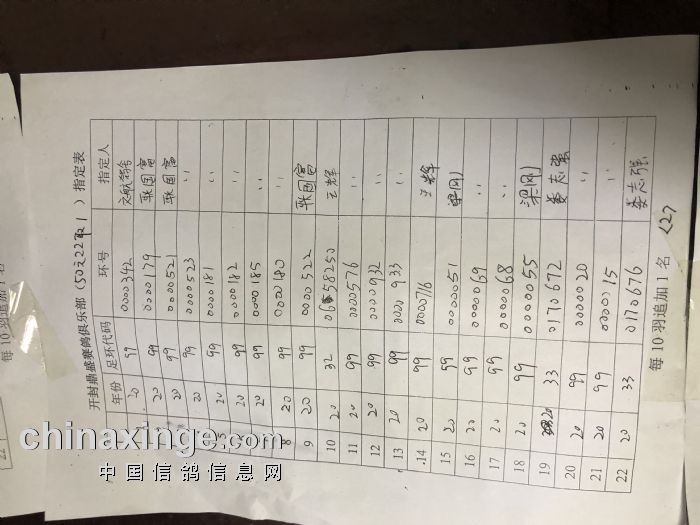 开封鼎盛赛鸽俱乐部(50元22取1)指定表
年份 足环代码 环号 指定人
20 99 0000342
20 99 0000179 耿国富
20 99 0000521 耿国富
20 99 0000523 〃
20 99 0000181 〃
20 99 0000182 〃
20 99 0000185 〃
8 20 99 0000180 〃
9 20 99 0000522 耿国富
10 20 32 0658250 王辉
11 20 99 0000576 〃
12 20 99 0000932 〃
13 20 99 0000933 〃
14 20 99 0000716 王辉
15 20 99 0000051 梁刚
16 20 99 0000069 〃
17 20 99 0000068 〃
18 20 99 0000055 梁刚
19 20 33 0170672 娄志强
20 20 99 0000020 〃
21 20 99 0000015 〃
22 20 33 0170676 娄志强
每10羽追加1名
<27
每10羽追加1名
22
chinaxinge.com
中国信鸽信息网